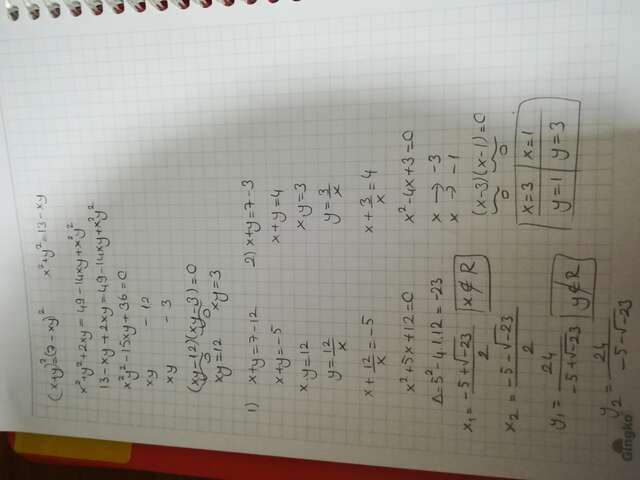 (x+y)²=(7-xy)² x²+y²=13-xy
x²+y²+2xy=49-14xy+x²y²
13-xy+2xy=49-14xy+x²y²
x²y²-15xy+36=0
xy -12
xy -3
(xy-12)(xy-3)=0
0 0
xy=12 xy=3
1) x+y=7-12
x+y=-5
x.y=12
y=12/x
x+12/x=-5
x²+5x+12=0
Δ=5²-4.1.12=-23
x₁=-5+√-23/2 x∉R
x₂=-5-√-23/2
y₁=24/-5+√-23 y∉R
y₂=24/-5-√-23
2) x+y=7-3
x+y=4
x.y=3
y=3/x
x+3/x=4
x²-4x+3=0
x → -3
x → -1
(x-3)(x-1)=0
0 0
x=3 x=1
y=1 y=3
Gingko